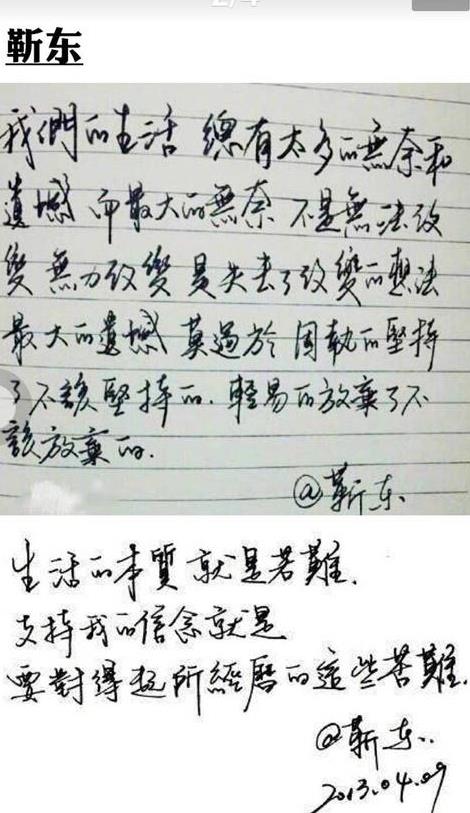 靳东
我們的生活 總有太多的無奈和
遺憾 而最大的無奈 不是無法改
變 無力改變 是失去了改變的想法
最大的遺憾 莫過於 固執的堅持
了不該堅持的. 輕易的放棄了不
該放棄的.
@靳东
生活的本質就是苦難.
支持我的信念就是
要對得起所經歷的這些苦難.
@靳东..
2013.04.09